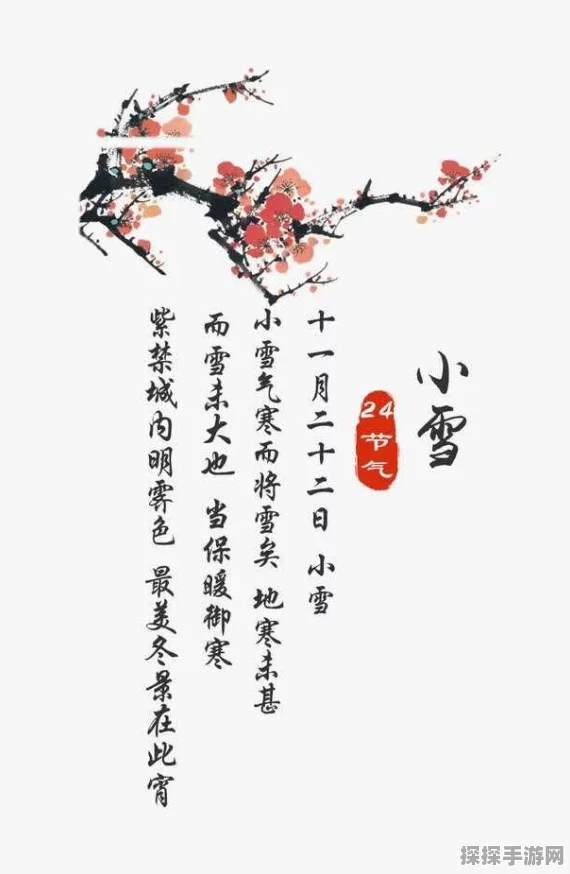 小雪
24节气
十一月二十二日 小雪
小雪气寒而将雪矣 地寒未甚
而雪未大也 当保暖御寒
紫禁城内明霁色 最美冬景在此宵
探探手游网